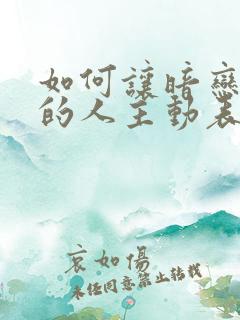 如何讓暗戀
的人主動表
哀如傷
未經同意禁止轉載